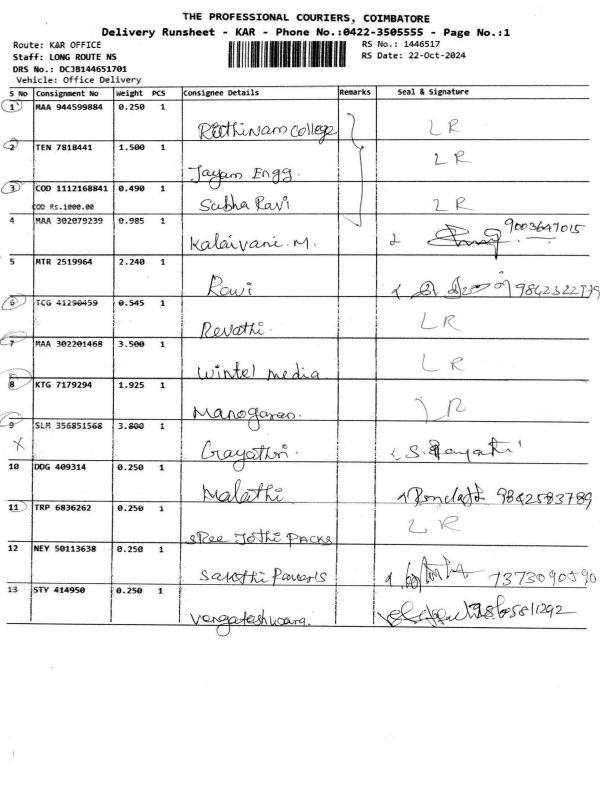 THE PROFESSIONAL COURIERS, COIMBATORE
Delivery Runsheet - KAR - Phone No.:0422-3505555 - Page No.:1
Route: KAR OFFICE RS No.: 1446517
Staff: LONG ROUTE NS RS Date: 22-Oct-2024
DRS No.: DCJB144651701
Vehicle: Office Delivery
S No Consignment No Weight PCS Consignee Details Remarks Seal & Signature
1 MAA 944599884 0.250 1
Rathinam College LR
2 TEN 7818441 1.500 1 LR
Jayam Engg.
3 COD 1112168841 0.490 1
COD Rs.1000.00 Subha Ravi LR
4 MAA 302079239 0.985 1 9003647015
Kalaivani. M.
5 MTR 2519964 2.240 1
Ravi
6 TCG 41290459 0.545 1 LR
Revathi.
7 MAA 302201468 3.500 1 LR
Wintel Media
8 KTG 7179294 1.925 1 LR
Manogaran.
9 SLM 356851568 3.800 1
X Gayathri.
10 DDG 409314 0.250 1
Malathi 9842583789
11 TRP 6836262 0.250 1 LR
Sree Jothi Packs
12 NEY 50113638 0.250 1
7373090590
13 STY 414950 0.250 1